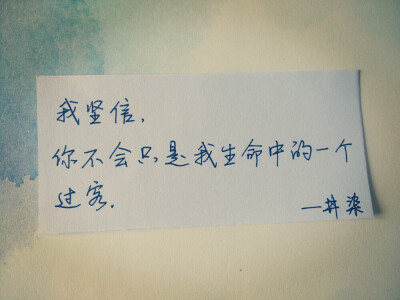 我坚信，
你不会只是我生命中的一个
过客.
—井染